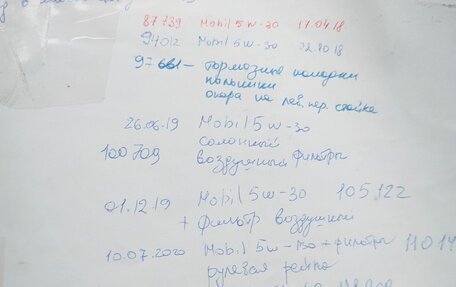 87739 Mobil 5w-30 11.04.18
94012 Mobil 5w-30 02.10.18
97661 - тормозные колодки
пальчики
опора на лев. пер. стойка
26.06.19 Mobil 5w-30
салонный
100709 воздушный фильтры
01.12.19 Mobil 5w-30 105122
+ фильтр воздушный
10.07.2020 Mobil 5w-30 + фильтры
рулевая рейка